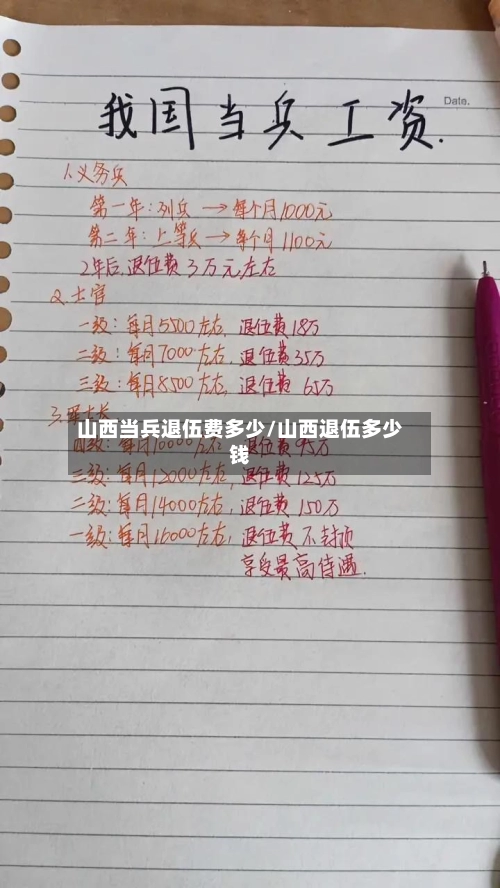 Date.
我国当兵工资.
1.义务兵
第一年:列兵→每个月1000元
第二年:上等兵→每个月1100元
2年后,退伍费3万元左右
2.士官
一级:每月5500左右,退伍费18万
二级:每月7000左右,退伍费35万
三级:每月8500左右,退伍费 65万
3.军士长
山西当兵退伍费多少/山西退伍多少
钱
四级:每月10000左右,退伍费95万
三级:每月12000左右,退伍费125万
二级:每月14000左右,退伍费 150万
一级:每月16000左右,退伍费不封顶
享受最高待遇.